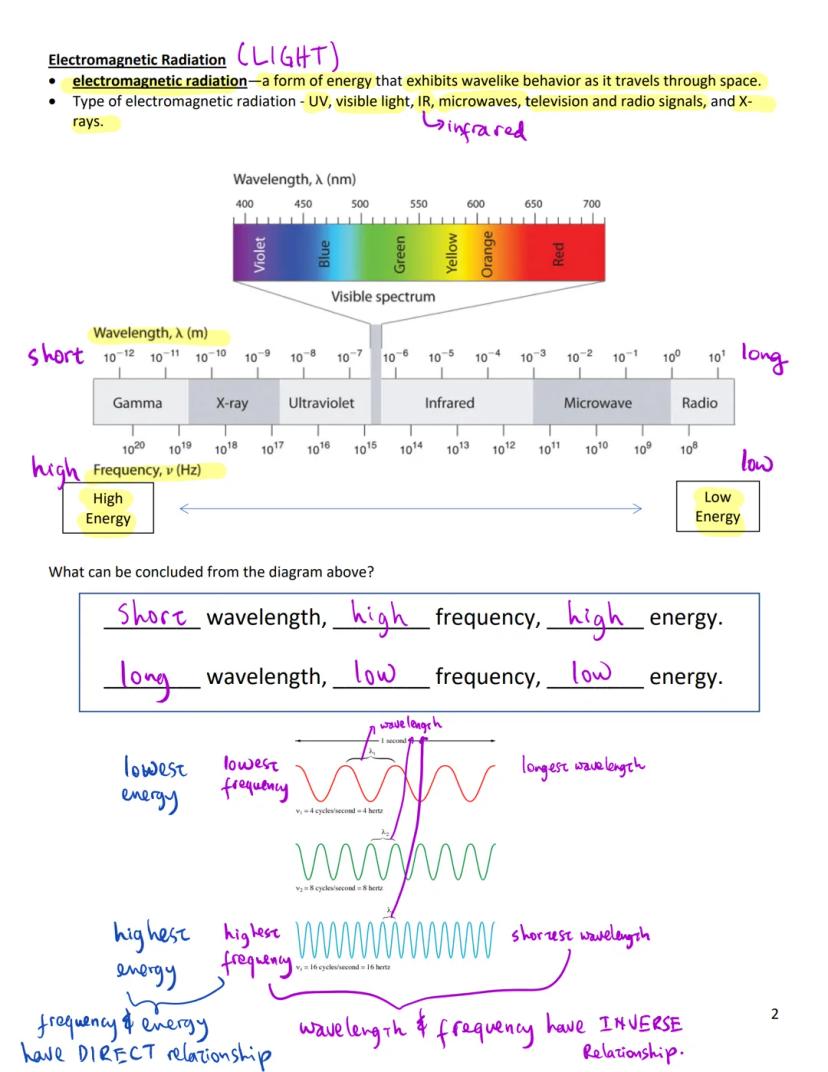 Electromagnetic Radiation (LIGHT)
• electromagnetic radiation—a form of energy that exhibits wavelike behavior as it travels through space.
• Type of electromagnetic radiation - UV, visible light, IR, microwaves, television and radio signals, and X-
rays.
↳infrared
Wavelength, λ (nm)
400 450 500 550 600 650 700
Violet Blue Green Yellow Orange Red
Visible spectrum
Wavelength, λ (m)
short 10⁻¹² 10⁻¹¹ 10⁻¹⁰ 10⁻⁹ 10⁻⁸ 10⁻⁷ 10⁻⁶ 10⁻⁵ 10⁻⁴ 10⁻³ 10⁻² 10⁻¹ 10⁰ 10¹ long
Gamma X-ray Ultraviolet Infrared Microwave Radio
10²⁰ 10¹⁹ 10¹⁸ 10¹⁷ 10¹⁶ 10¹⁵ 10¹⁴ 10¹³ 10¹² 10¹¹ 10¹⁰ 10⁹ 10⁸
high Frequency, ν (Hz) low
High
Energy
Low
Energy
What can be concluded from the diagram above?
short wavelength, high frequency, high energy.
long wavelength, low frequency, low energy.
wavelength
1 second
λ₁
lowest
energy
lowest
frequency
longest wavelength
ν₁ = 4 cycles/second = 4 hertz
λ₂
ν₂ = 8 cycles/second = 8 hertz
highest
energy
highest
frequency
shortest wavelength
= 16 cycles/second = 16 hertz
2
frequency & energy
have DIRECT relationship
wavelength & frequency have INVERSE
Relationship.